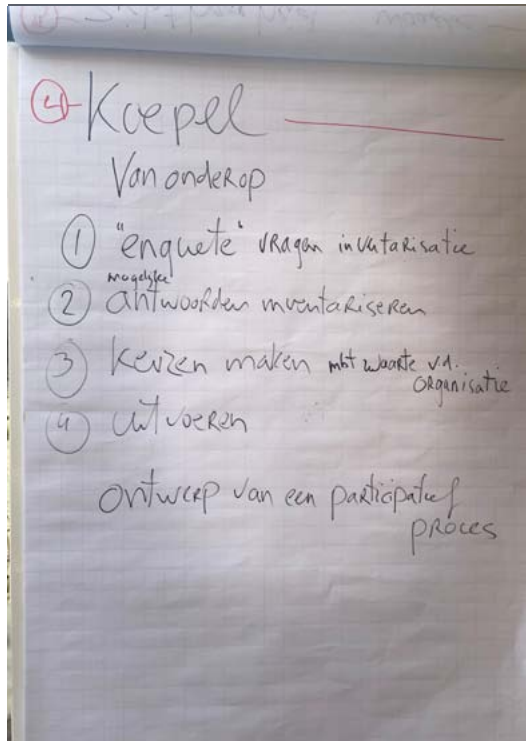 4 Koepel
Van onderop
1 "enquete" vragen inventarisatie
mogelijke
2 antwoorden inventariseren
3 Keuzen maken mbt waarte v.d.
organisatie
4 uitvoeren
ontwerp van een participatief
proces